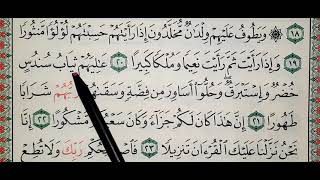 ۝١٨ وَيَطُوفُ عَلَيْهِمْ وِلْدَٰنٌ مُّخَلَّدُونَ إِذَا رَأَيْتَهُمْ حَسِبْتَهُمْ لُؤْلُؤًا مَّنثُورًا
۝١٩ وَإِذَا رَأَيْتَ ثَمَّ رَأَيْتَ نَعِيمًا وَمُلْكًا كَبِيرًا ۝٢٠ عَٰلِيَهُمْ ثِيَابُ سُندُسٍ
خُضْرٌ وَإِسْتَبْرَقٌ وَحُلُّوٓا۟ أَسَاوِرَ مِن فِضَّةٍ وَسَقَىٰهُمْ رَبُّهُمْ شَرَابًا
طَهُورًا ۝٢١ إِنَّ هَٰذَا كَانَ لَكُمْ جَزَآءً وَكَانَ سَعْيُكُم مَّشْكُورًا ۝٢٢ إِنَّا
نَحْنُ نَزَّلْنَا عَلَيْكَ ٱلْقُرْءَانَ تَنزِيلًا ۝٢٣ فَٱصْبِرْ لِحُكْمِ رَبِّكَ وَلَا تُطِعْ